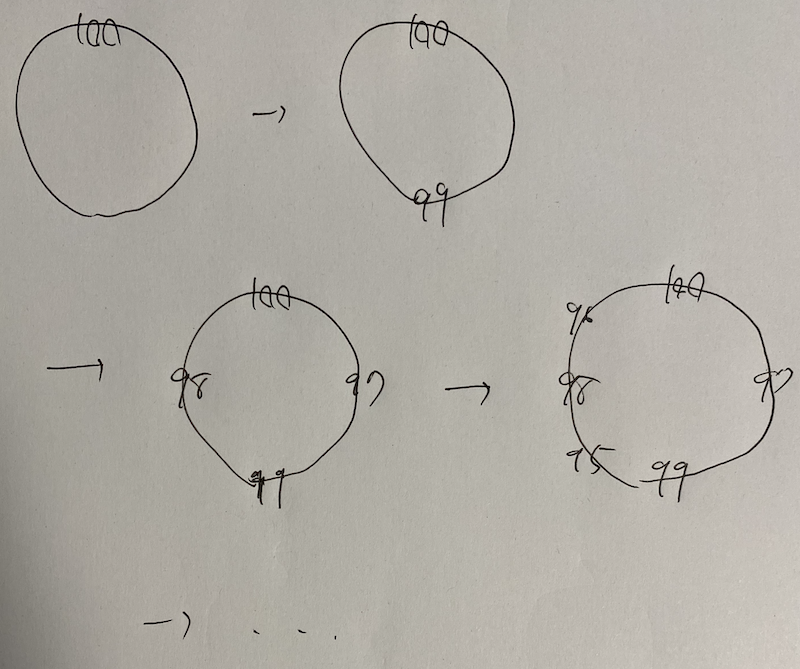 100
→
100
99
→
100
98
97
99
→
100
96
98
97
95
99
→ . . .